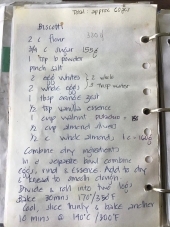 Total: approx 60pcs
BISCOTTI
2 c flour 320g
3/4 c sugar 155g
1 tsp b powder
pinch salt
2 egg whites
2 whole eggs
1 tbsp orange zest
1/2 tsp vanilla essence
1 cup walnut pistachio
1/2 cup almond
1/2 c whole almonds
Combine dry ingredients
In a separate bowl combine
eggs, rind & essence. Add to dry
& knead to smooth dough.
Divide & roll into two logs
Bake 30mins 170°/350F
Cool, slice thinly & bake another
10 mins @ 140°c/300°F